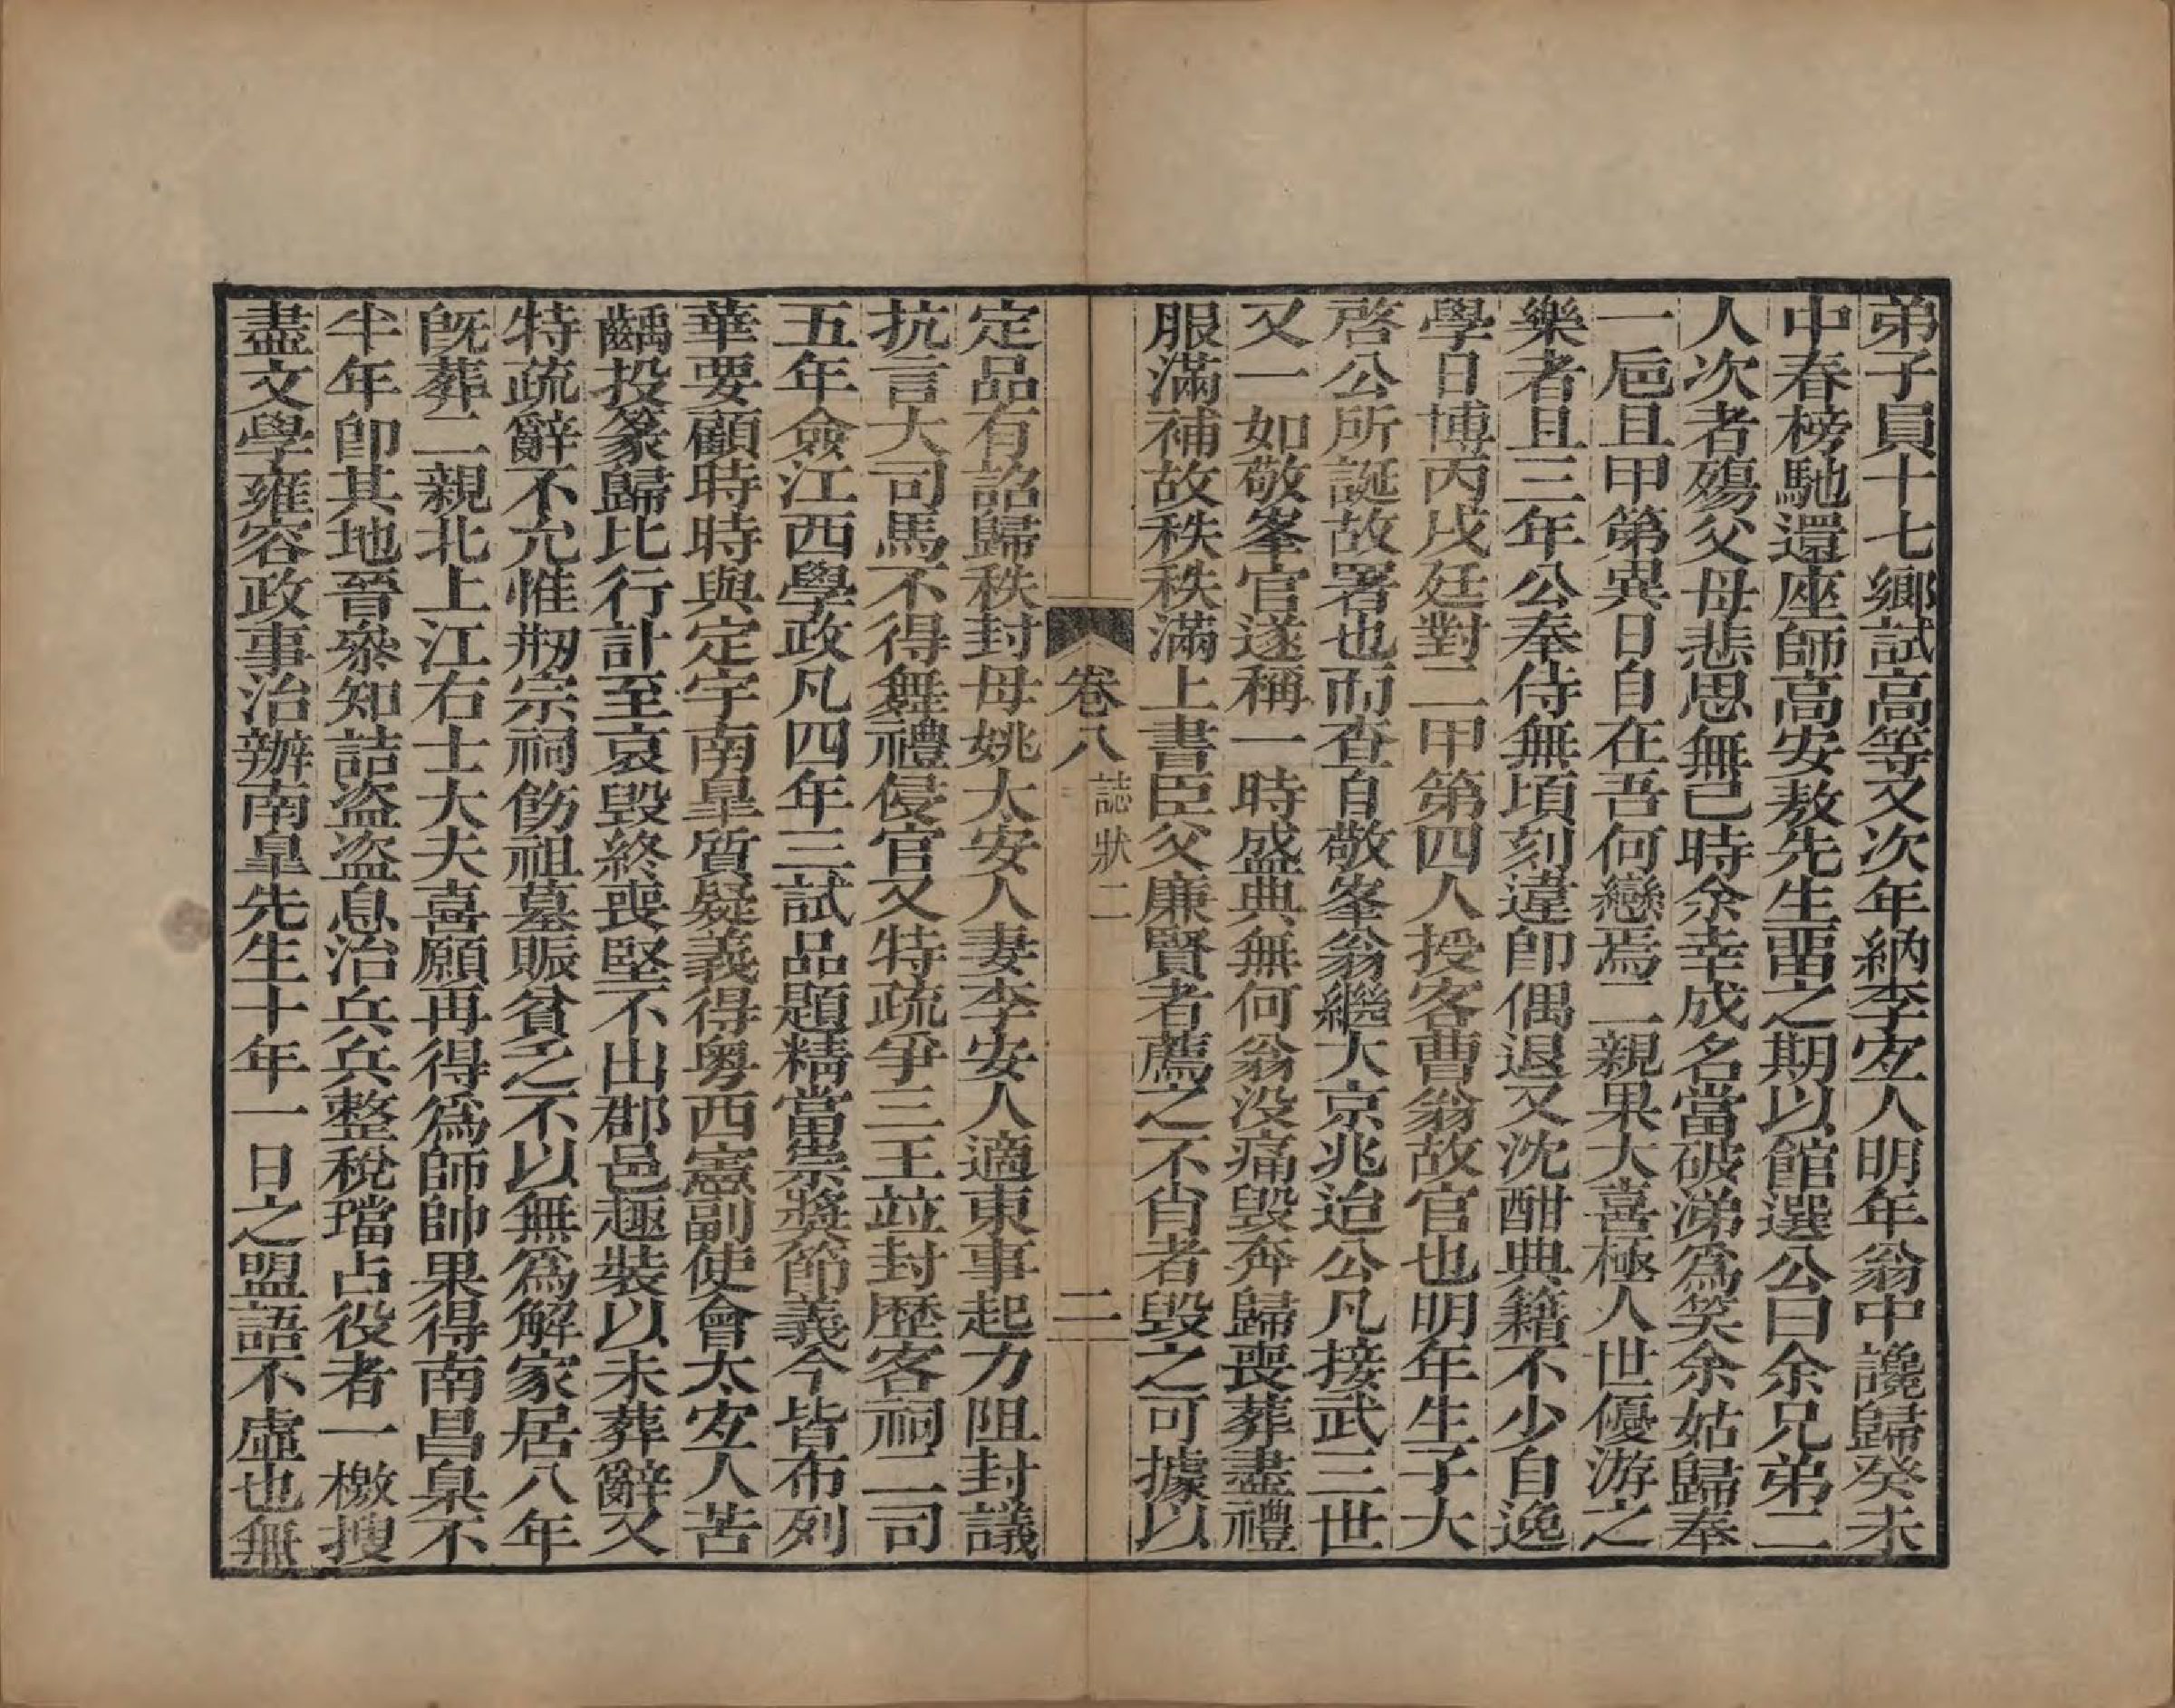 弟子員十七鄉試高等又次年納李安人明年翁中讒歸癸未
中春榜馳還座師高安敖先生畱之期以館選公曰余兄弟二
人次者殤父母悲思無已時余幸成名當破涕爲笑余姑歸奉
一巵且甲第異日自在吾何戀焉二親果大喜極人世優游之
樂者且三年公奉侍無頃刻違卽偶退又沈酣典籍不少自逸
學日博丙戌廷對二甲第四人授客曹翁故官也明年生子大
啓公所誕故署也而査自敬峯翁繼大京兆迨公凡接武三世
又一如敬峯官遂稱一時盛典無何翁没痛毀奔歸喪葬盡禮
服滿補故秩秩滿上書臣父廉賢者薦之不肖者毀之可據以
卷八 誌狀二 二
定品有詔歸秩封母姚太安人妻李安人適東事起力阻封議
抗言大司馬不得舞禮侵官又特疏爭三王竝封歷客祠二司
五年僉江西學政凡四年三試品題精當崇奬節義今皆布列
華要顧時時與定宇南臯質疑義得粤西憲副使會太安人苦
齲投篆歸比行計至哀毀終喪堅不出郡邑趣裝以未葬辭又
特疏辭不允惟剏宗祠飭祖墓賑貧乏不以無爲解家居八年
旣葬二親北上江右士大夫喜願再得爲師帥果得南昌臬不
半年卽其地晉叅知詰盜盜息治兵兵整稅璫占役者一檄搜
盡文學雍容政事治辦南臯先生十年一日之盟語不虛也無